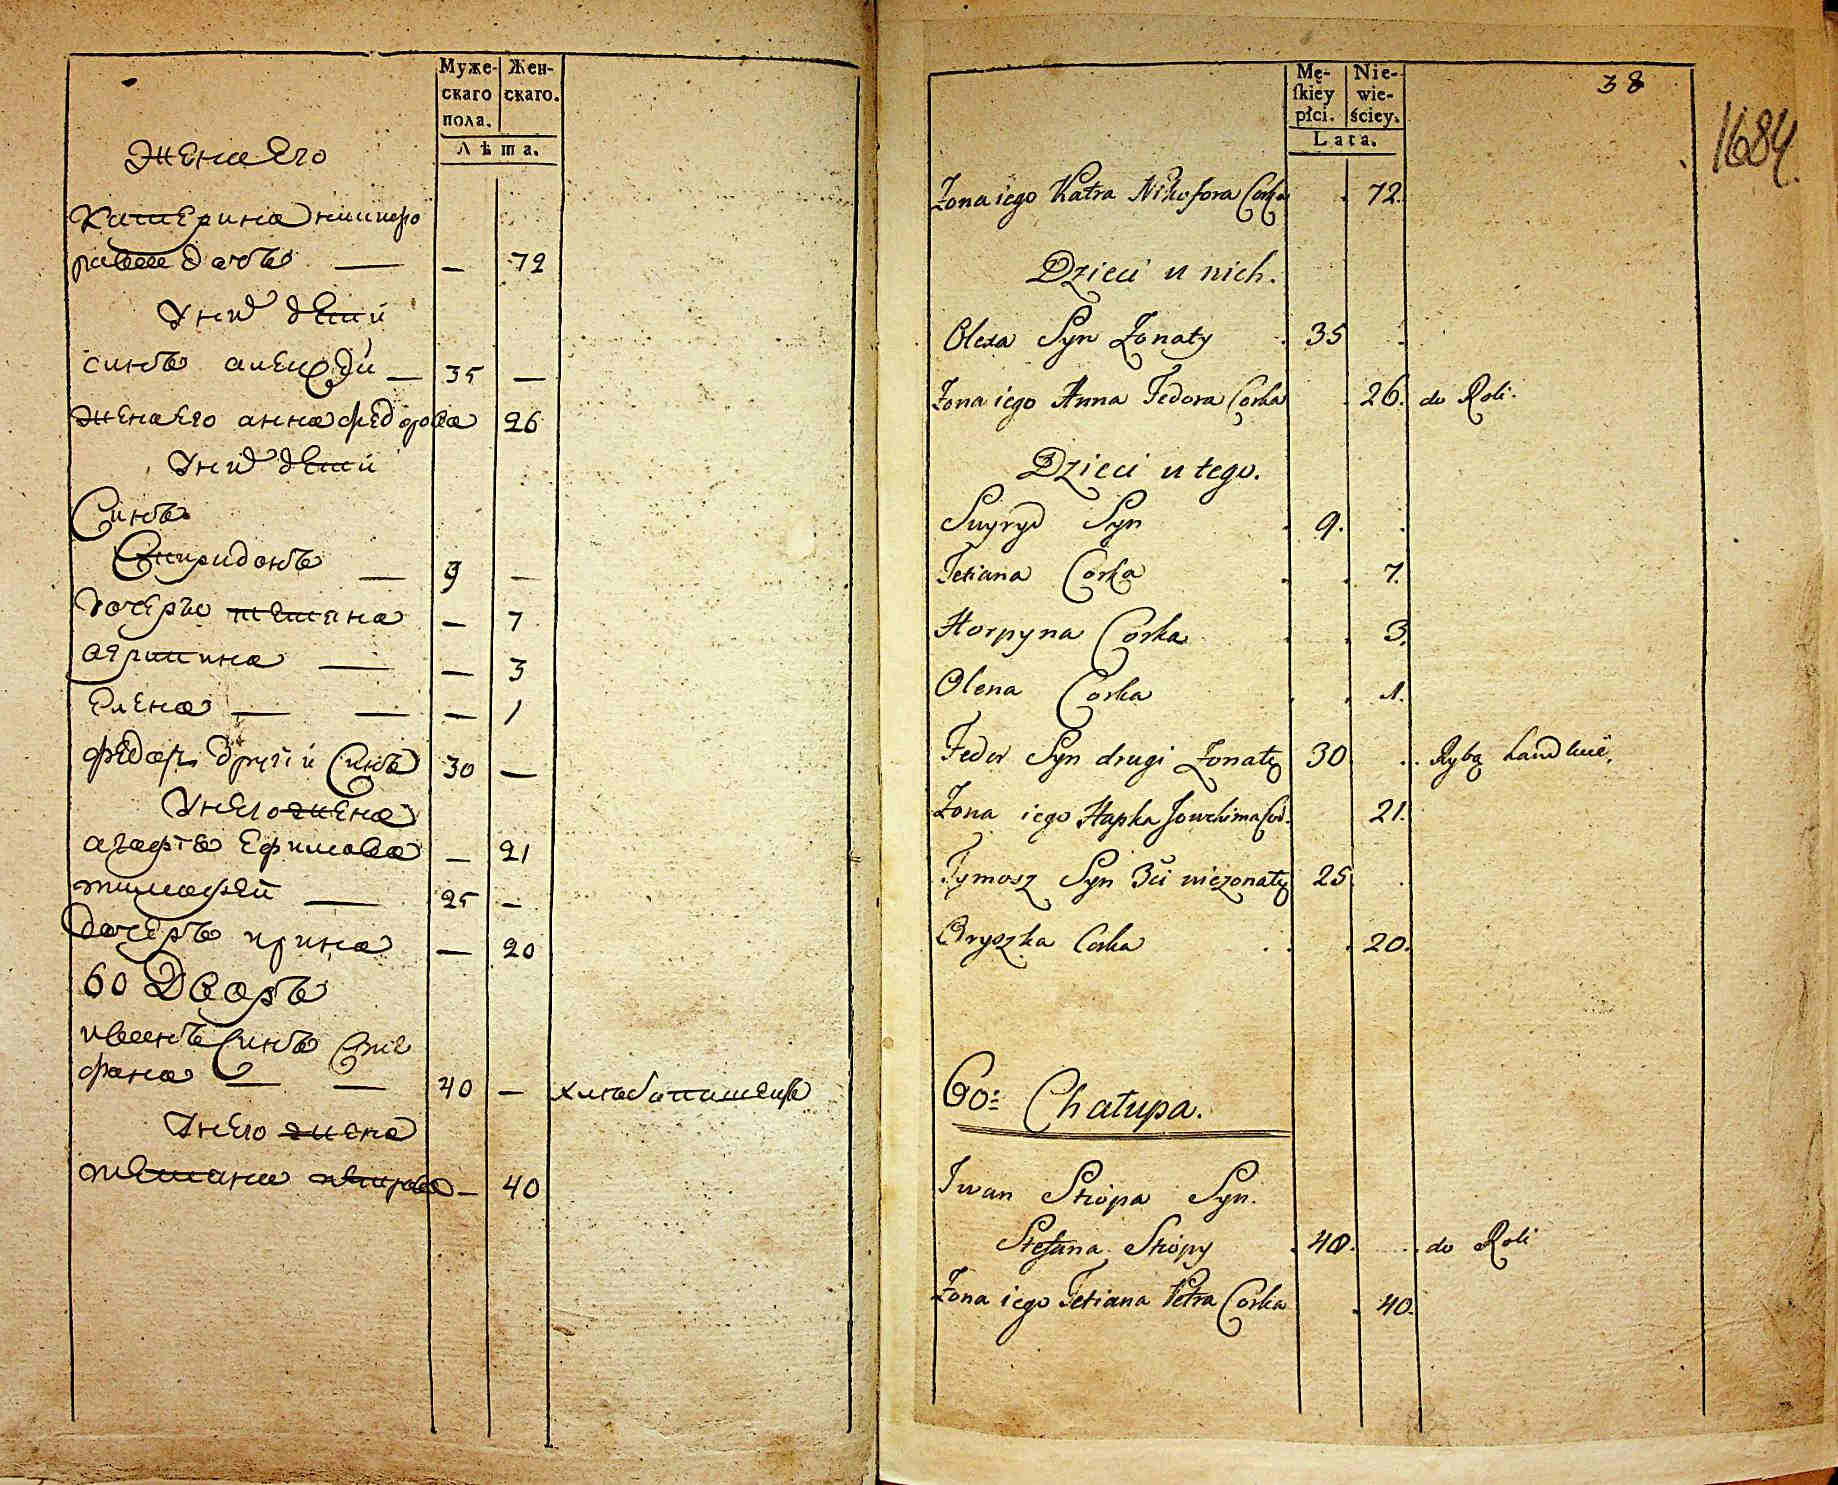 Муже-
скаго
пола.
Жен-
скаго.
Лѣта.
Жена его
Катерина никифо
рова дочь — — 72
У них дети
Синъ алексѣй — 35 —
жена его анна федорова 26
У них дети
Синъ
Спиридонъ — 9 —
дочеръ тетяна — 7
агрипина — — 3
елена — — — 1
федоръ другий Синъ 30 —
У него жена
агафия Ефимова — 21
тимофей — 25 —
дочеръ ирина — 20
60 Дворъ
иванъ Синъ Сте
фана — — 40 — хлѣбопашецъ
У него жена
тетяна петрова — 40
Mę-
ſkiey
płci.
Nie-
wie-
ściey.
Lata.
38
1684.
Żona iego Katra Nikofora Corka 72.
Dzieci u nich.
Olexa Syn Żonaty 35
Żona iego Anna Fedora Corka 26. do Roli.
Dzieci u tego.
Spyryd Syn 9.
Tetiana Corka 7.
Horpyna Corka 3.
Olena Corka 1.
Fedor Syn drugi Żonaty 30 Rybą handluie.
Żona iego Hapka Jowchima Cor. 21.
Tymosz Syn 3ci nieżonaty 25
Oryszka Corka 20.
60: Chałupa.
Iwan Skopa Syn.
Stefana Skopy 40. do Roli
Żona iego Tetiana Petra Corka 40.